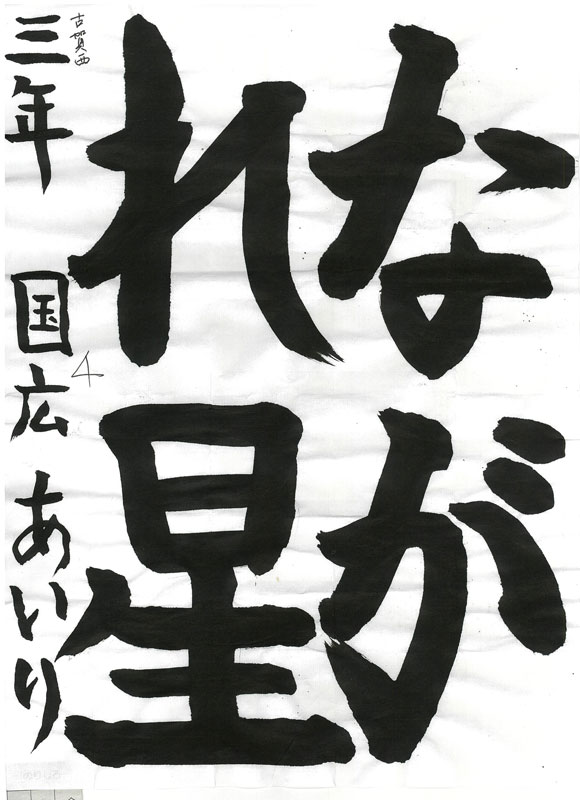 なが
れ星
古賀西
三年 国広 あいり
4